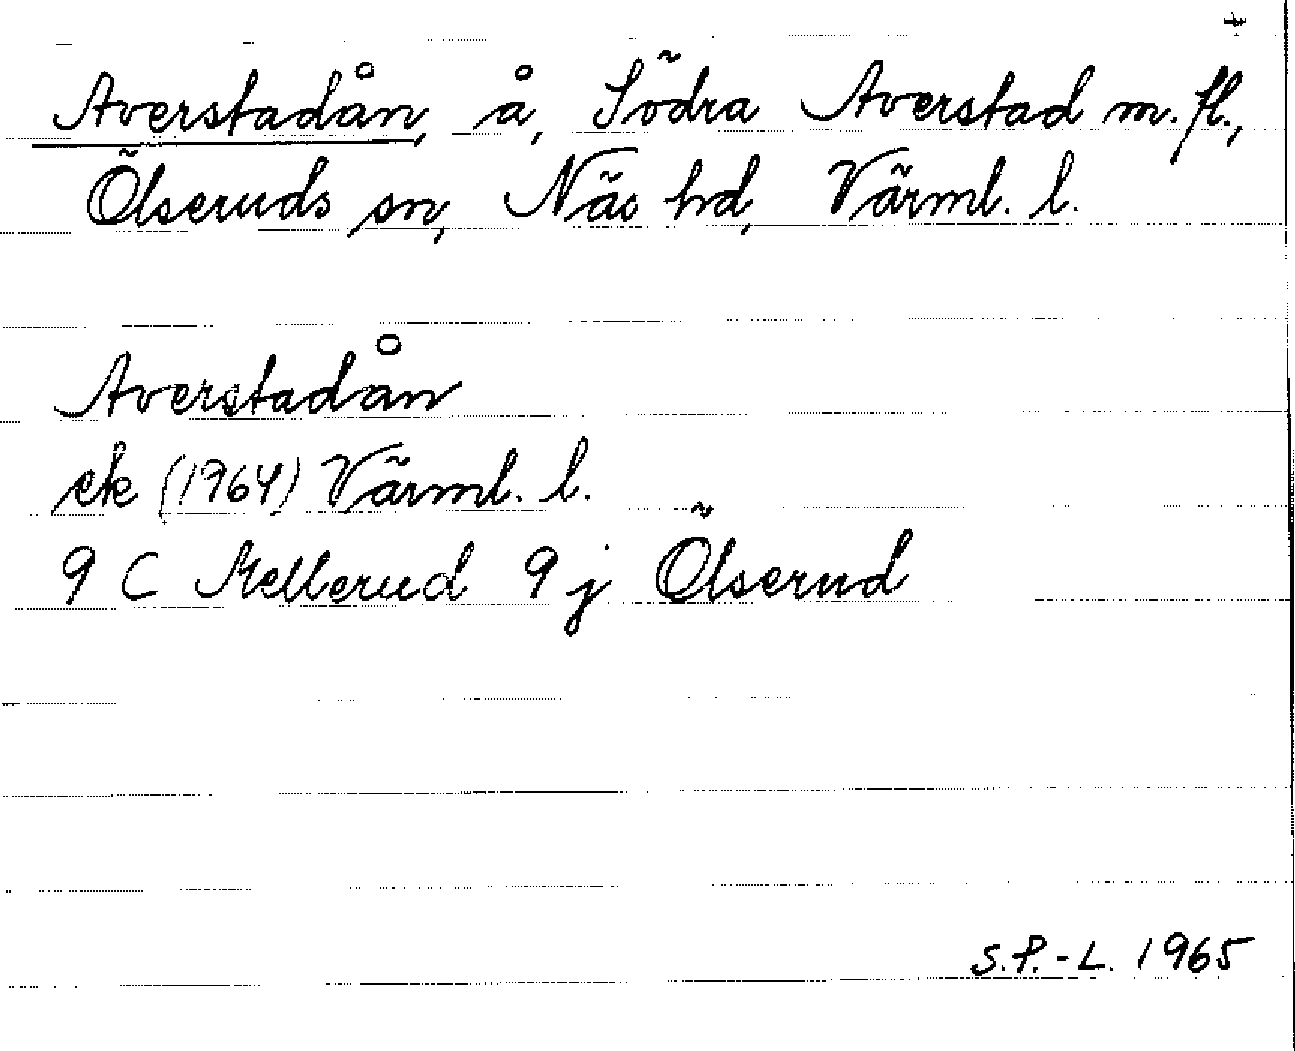 Averstadån, å, Södra Averstad m. fl.,
Ölseruds sn, Näs hd, Värml. l.
Averstadån
ek (1964) Värml. l.
9 C Mellerud 9 j Ölserud
S.P.-L. 1965